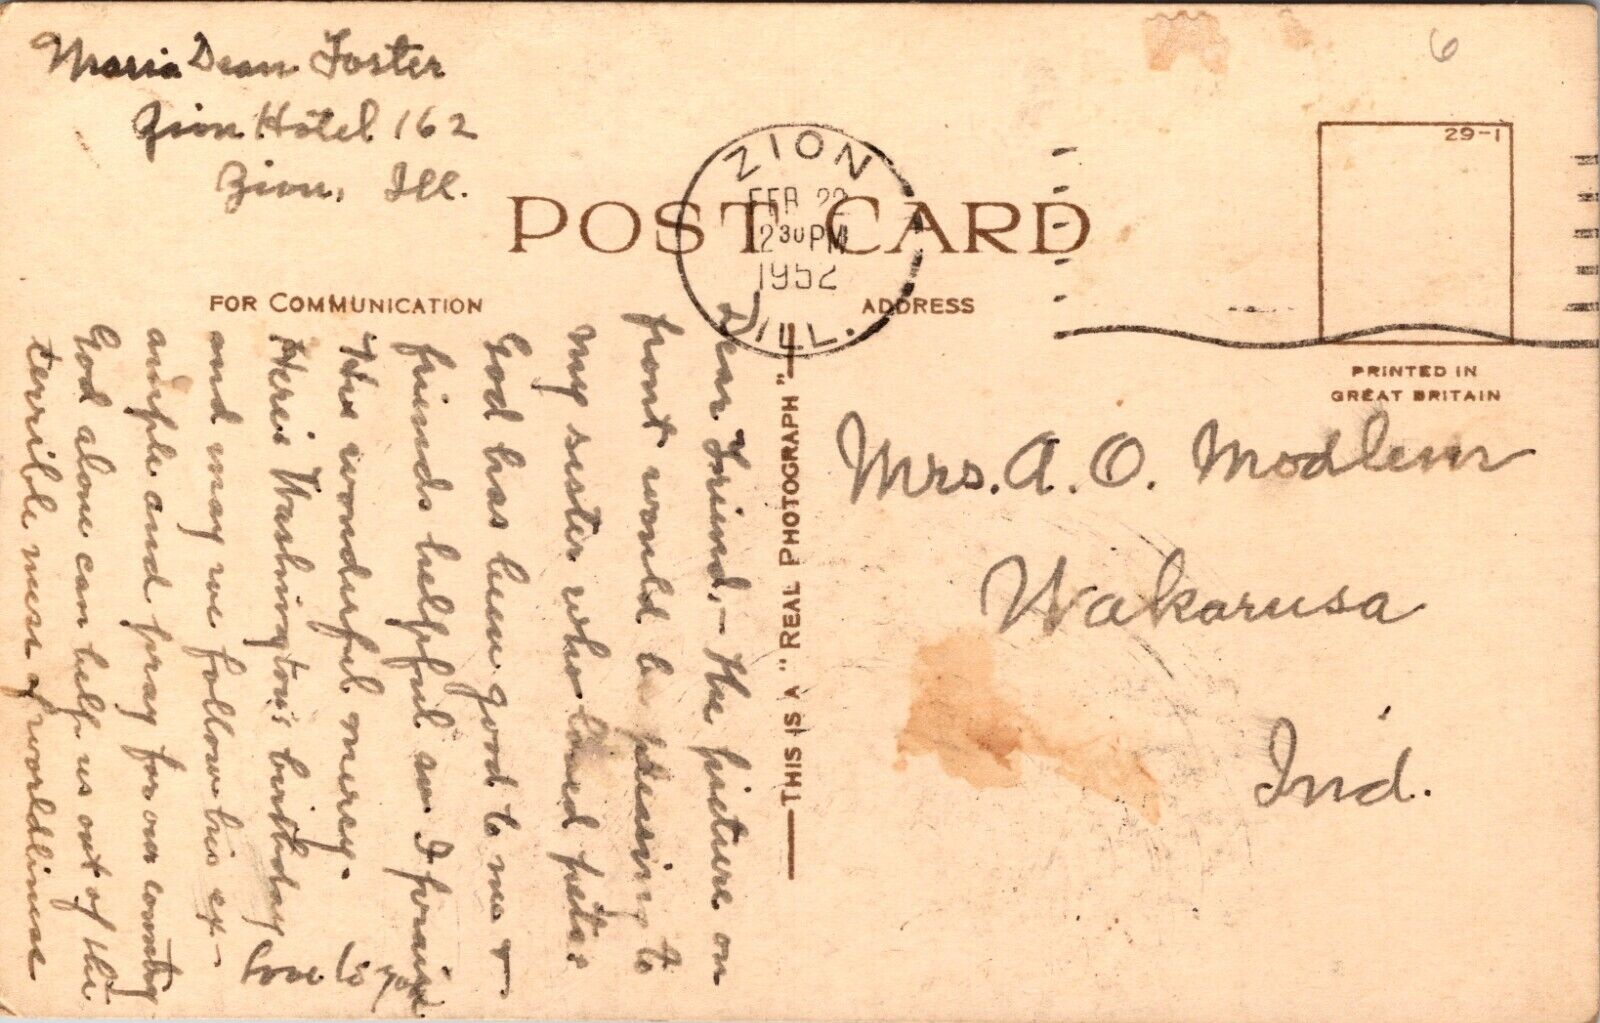 Maria Dean Foster
Zion Hotel 162
Zion, Ill.
6
29-1
ZION
FEB 22
2 30 PM
1952
ILL.
POST CARD
FOR COMMUNICATION
ADDRESS
PRINTED IN
GREAT BRITAIN
THIS IS A "REAL PHOTOGRAPH"
Dear Friend,- the picture on
front would be pleasing to
my sister who loved pets.
God has been good to me +
friends helpful so I praise
His wonderful mercy.
Here's Washington's birthday
and may we follow his ex-
ample and pray for our country
God alone can help us out of this
terrible mess of worldliness
Love to you
Mrs. A. O. Modlem
Wakarusa
Ind.